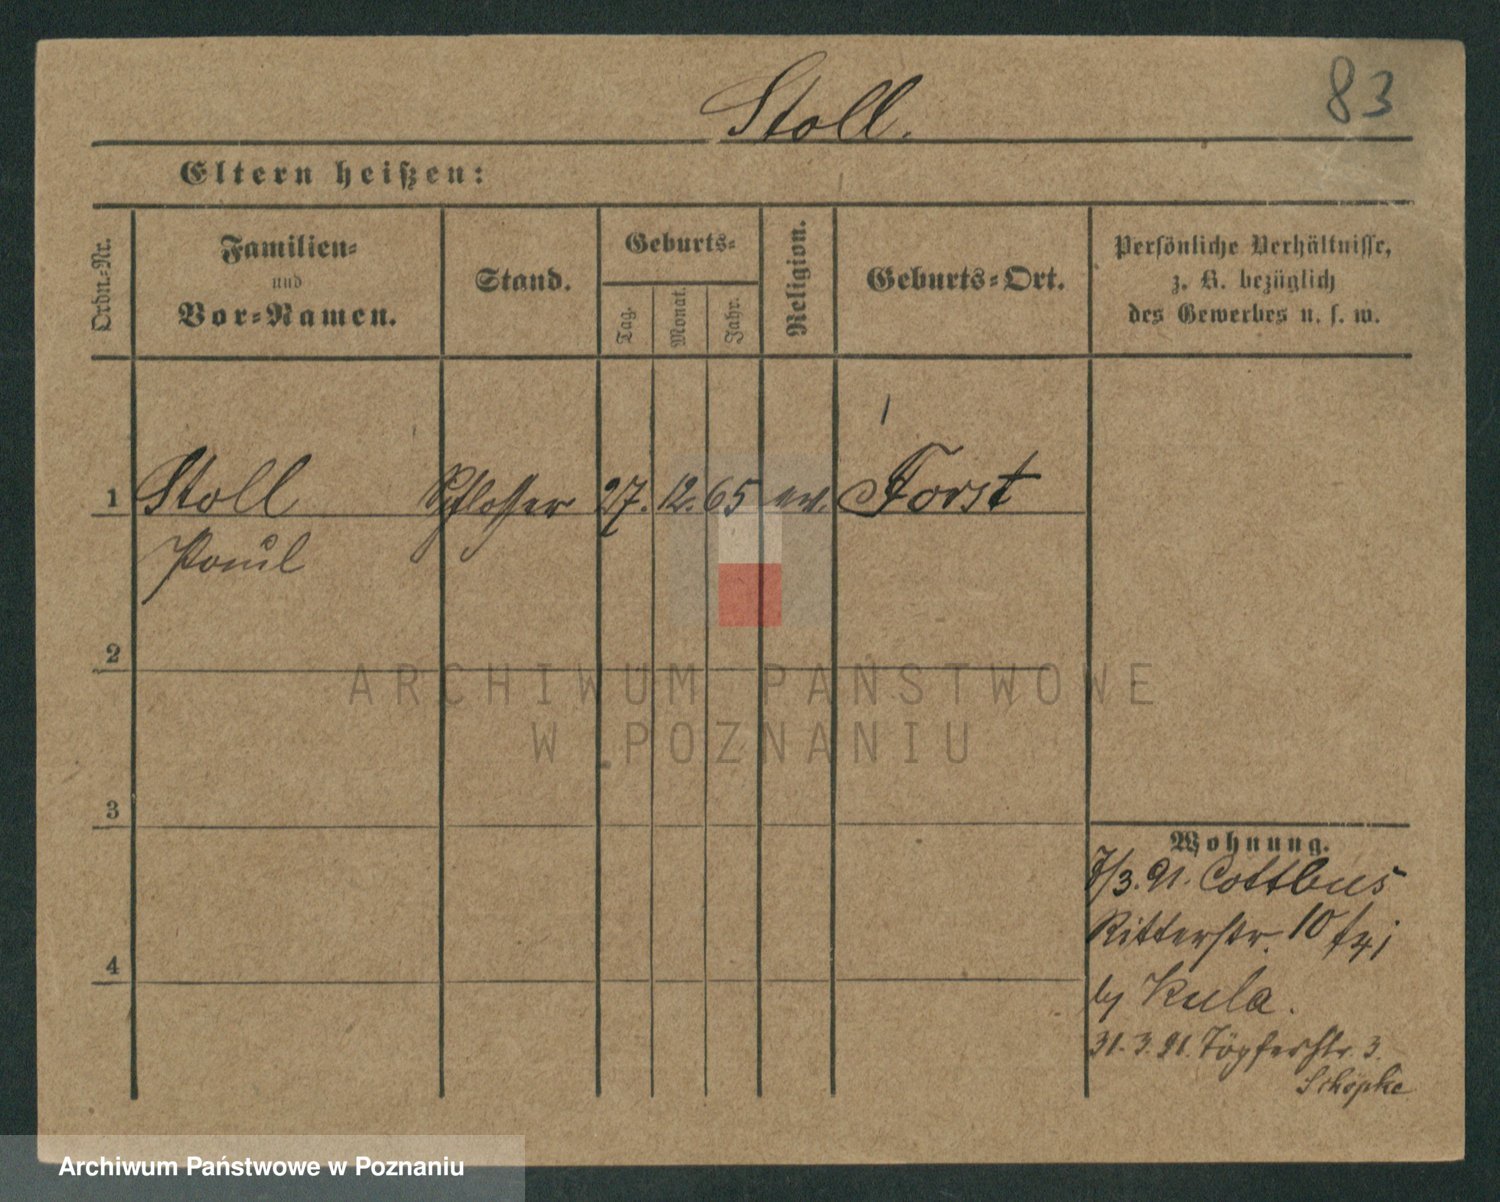 83
Stoll.
Eltern heißen:
Ordn.-Nr.
Familien-
und
Vor-Namen.
Stand.
Geburts-
Tag.
Monat.
Jahr.
Religion.
Geburts-Ort.
Persönliche Verhältnisse,
z. B. bezüglich
des Gewerbes u. s. w.
1 Stoll Schlosser 27. 12. 65 ev. Forst
Paul
2
3
4
Wohnung.
7/3. 91. Cottbus
Ritterstr. 10
by Kula.
31. 3. 91. Töpferstr. 3.
Schöpke
ARCHIWUM PAŃSTWOWE
W POZNANIU
Archiwum Państwowe w Poznaniu